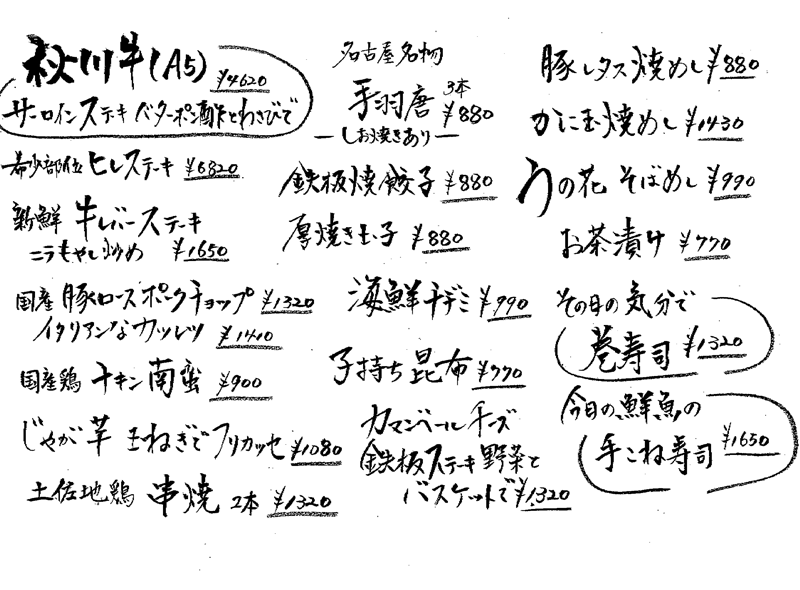 秋川牛(A5) ¥4620
サーロインステーキ バターポン酢とわさびで
希少部位 ヒレステーキ ¥6820
新鮮 牛レバーステーキ
ニラもやし炒め ¥1650
国産 豚ロースポークチョップ ¥1320
イタリアンなカツレツ ¥1410
国産鶏 チキン南蛮 ¥900
じゃが芋 玉ねぎでフリカッセ ¥1080
土佐地鶏 串焼 2本 ¥1320
名古屋名物
手羽唐 3本 ¥880
ーしお焼きありー
鉄板焼餃子 ¥880
厚焼き玉子 ¥880
海鮮チヂミ ¥990
子持ち昆布 ¥770
カマンベールチーズ
鉄板ステーキ野菜と
バスケットで ¥1320
豚レタス焼めし ¥880
かに玉焼めし ¥1430
うの花 そばめし ¥990
お茶漬け ¥770
その日の気分で
巻寿司 ¥1320
今日の鮮魚の
手こね寿司 ¥1650